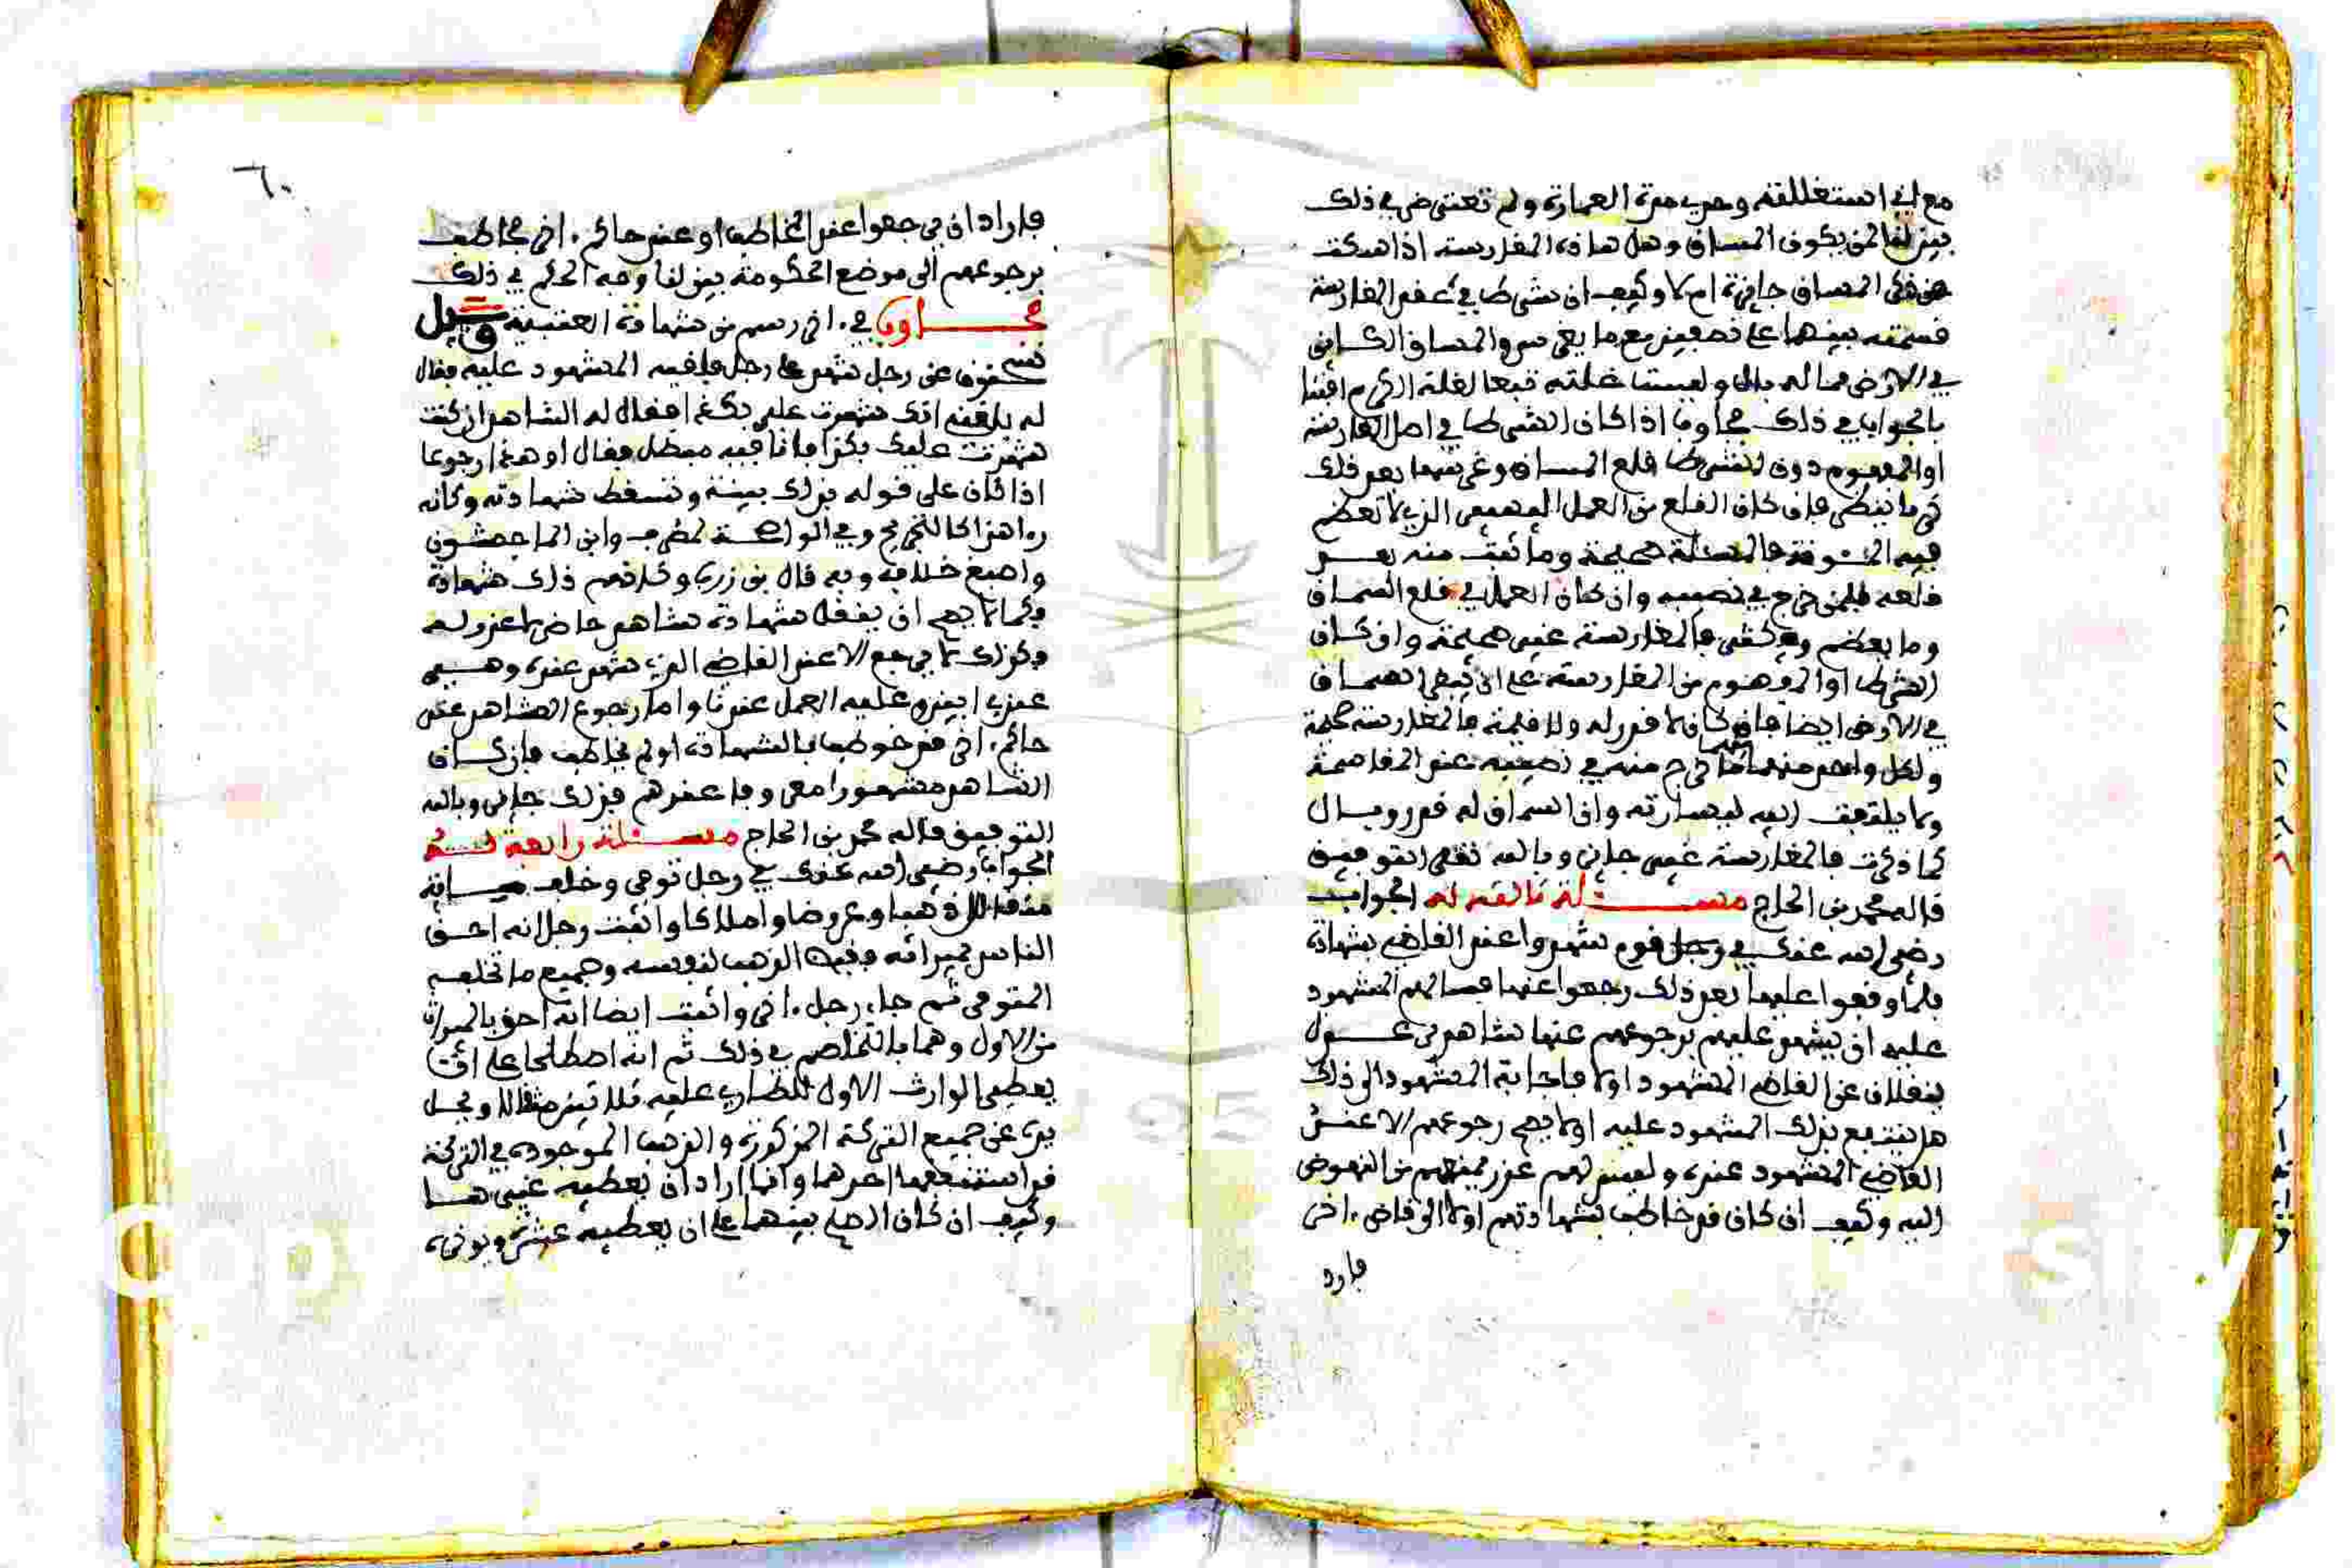 مع اني استغللته وحدي مدة العمارة ولم تعترض في ذلك
بين لنا لمن يكون الساق وهل هاذه المغارسة اذا سكت
عن ذكر الساق جايزة ام لا وكيف ان شرطا في عقد المغارسة
قسمته بينهما على نصفين مع ما يغرس والساق الكاين
في الارض مما له بال وليست غلته تبعا لغلة الكرم افتنا
بالجواب في ذلك مجاوبا اذا كان الشرط في اصل المغارسة
او المفهوم دون الشرط قلع الساق وغرسها بعد ذلك
فيه المئونة فالمسئلة صحيحة وما نبت منه بعد
قلعه فلمن خرج في نصيبه وان كان العمل في قلع الساق
وما يعظم ويكثر فالمغارسة غير صحيحة وان كان
الشرط او المفهوم من المغارسة على ان يبقى الساق
في الارض ايضا فان كان لا قدر له ولا قيمة فالمغارسة صحيحة
ولكل واحد منهما ما خرج منه في نصيبه عند المقاسمة
ولا يلتفت اليه ليسارته وان الساق له قدر وبال
كما ذكرت فالمغارسة غير جايز وبالله تعلى التوفيق
قاله محمد بن الحاج مسئلة ثالثة له الجواب
رضي الله عنك في رجل قوم شهدوا عند القاضي بشهادة
فلما وقعوا عليها بعد ذلك رجعوا عنها فسالهم المشهود
عليه ان يشهد عليهم برجوعهم عنها شاهدى عدول
ينقلان عن القاضي المشهود اولا فاجابه المشهود الى ذلك
هل ينتفع بذلك المشهود عليه او لا يصح رجوعهم الا عند
القاضي المشهود عنده وليس لهم عذر يمنعهم من النهوض
اليه وكيف ان كان قد خاطب بشهادتهم اولا الى قاض اخر
فاراد
٦٠
فاراد ان يرجعوا عند المخاطب او عند حاكم اخر مخاطب
برجوعهم الى موضع الحكومة بين لنا وجه الحكم في ذلك
مجاوبا في اخر رسم من شهادة العتبية وسئل
سحنون عن رجل شهد على رجل فلقيه المشهود عليه فقال
له بلغني انك شهدت علي بكذا فقال له الشاهد ان كنت
شهدت عليك بكذا فانا فيه مبطل فقال او هذا رجوعا
اذا كان على قوله بذلك بينة وتسقط شهادته وكانه
راهذا كالتجريح وفي الواضحة لمطرف وابن الماجشون
واصبغ خلافه وبه قال بن زرب وكلاهم ذلك شهادة
فكما لا يصح ان ينقل شهادة شاهد حاضر لا عذر له
فكذلك لا يرجع الا عند القاضي الذي شهد عنده وهو
عندي ابين وعليه العمل عندنا واما رجوع الشاهد عند
حاكم اخر قد خوطب بالشهادة او لم يخاطب فان كان
الشاهد مشهورا معروفا عندهم فذلك جايز وبالله
التوفيق قاله محمد بن الحاج مسئلة رابعة له
الجواب رضي الله عنك في رجل توفي وخلف مياية
مثقال ذهبا وعروضا واملاكا واثبت رجل انه احق
الناس بميراثه وقبض الذهب لنفسه وجميع ما تخلفه
المتوفى ثم جاء رجل اخر واثبت ايضا انه احق بالميراث
من الاول وهما بالتخاصم في ذلك ثم انه اصطلحا على ان
يعطي الوارث الاول للطاري عليه ثلاثين مثقالا ويحل
يده عن جميع التركة المذكورة والذهب الموجود في التركة
قد استنفعها احدهما وانما اراد ان يعطيه غيرها
وكيف ان كان الصلح بينهما على ان يعطيه عشرة ويوخره